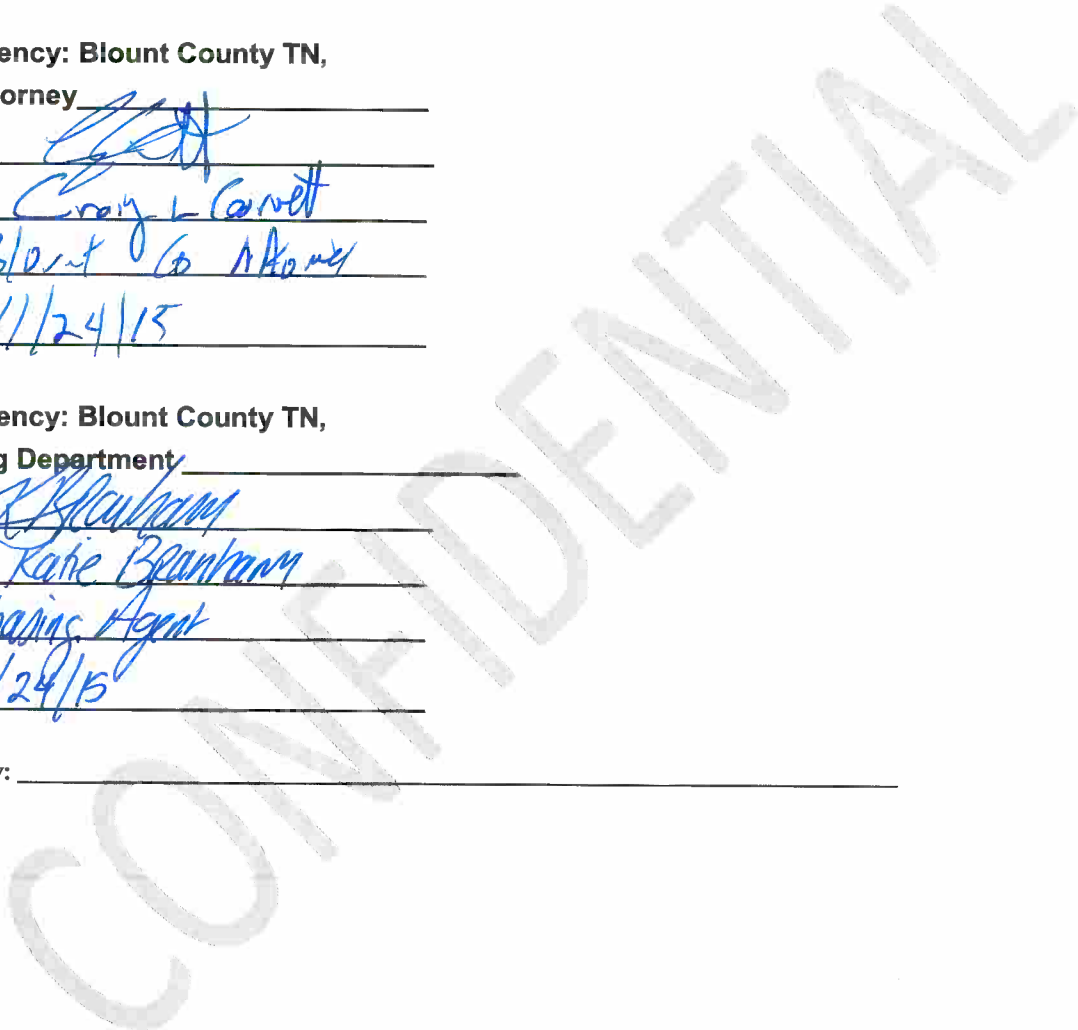 ency: Blount County TN,
orney
Craig L Garrett
Blount Co Attorney
11/24/15
ency: Blount County TN,
g Department
K Branham
Katie Branham
hasing Agent
/24/15
y:
CONFIDENTIAL